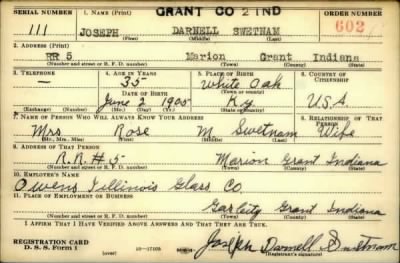 GRANT CO 2 IND
SERIAL NUMBER 1. NAME (Print) ORDER NUMBER
111 JOSEPH DARNELL SWETNAM 602
(First) (Middle) (Last)
2. ADDRESS (Print)
RR 5 Marion Grant Indiana
(Number and street or R. F. D. number) (Town) (County) (State)
3. TELEPHONE 4. AGE IN YEARS 5. PLACE OF BIRTH 6. COUNTRY OF CITIZENSHIP
— 35 White Oak
DATE OF BIRTH (Town or county)
June 2 1905 Ky U.S.A.
(Exchange) (Number) (Mo.) (Day) (Yr.) (State or country)
7. NAME OF PERSON WHO WILL ALWAYS KNOW YOUR ADDRESS 8. RELATIONSHIP OF THAT PERSON
Mrs Rose M Swetnam Wife
(Mr., Mrs., Miss) (First) (Middle) (Last)
9. ADDRESS OF THAT PERSON
R.R.#5 Marion Grant Indiana
(Number and street or R. F. D. number) (Town) (County) (State)
10. EMPLOYER'S NAME
Owens Illinois Glass Co.
11. PLACE OF EMPLOYMENT OR BUSINESS
Gas City Grant Indiana
(Number and street or R. F. D. number) (Town) (County) (State)
I AFFIRM THAT I HAVE VERIFIED ABOVE ANSWERS AND THAT THEY ARE TRUE.
REGISTRATION CARD
D. S. S. Form 1 (over) Joseph Darnell Swetnam
(Registrant's signature)